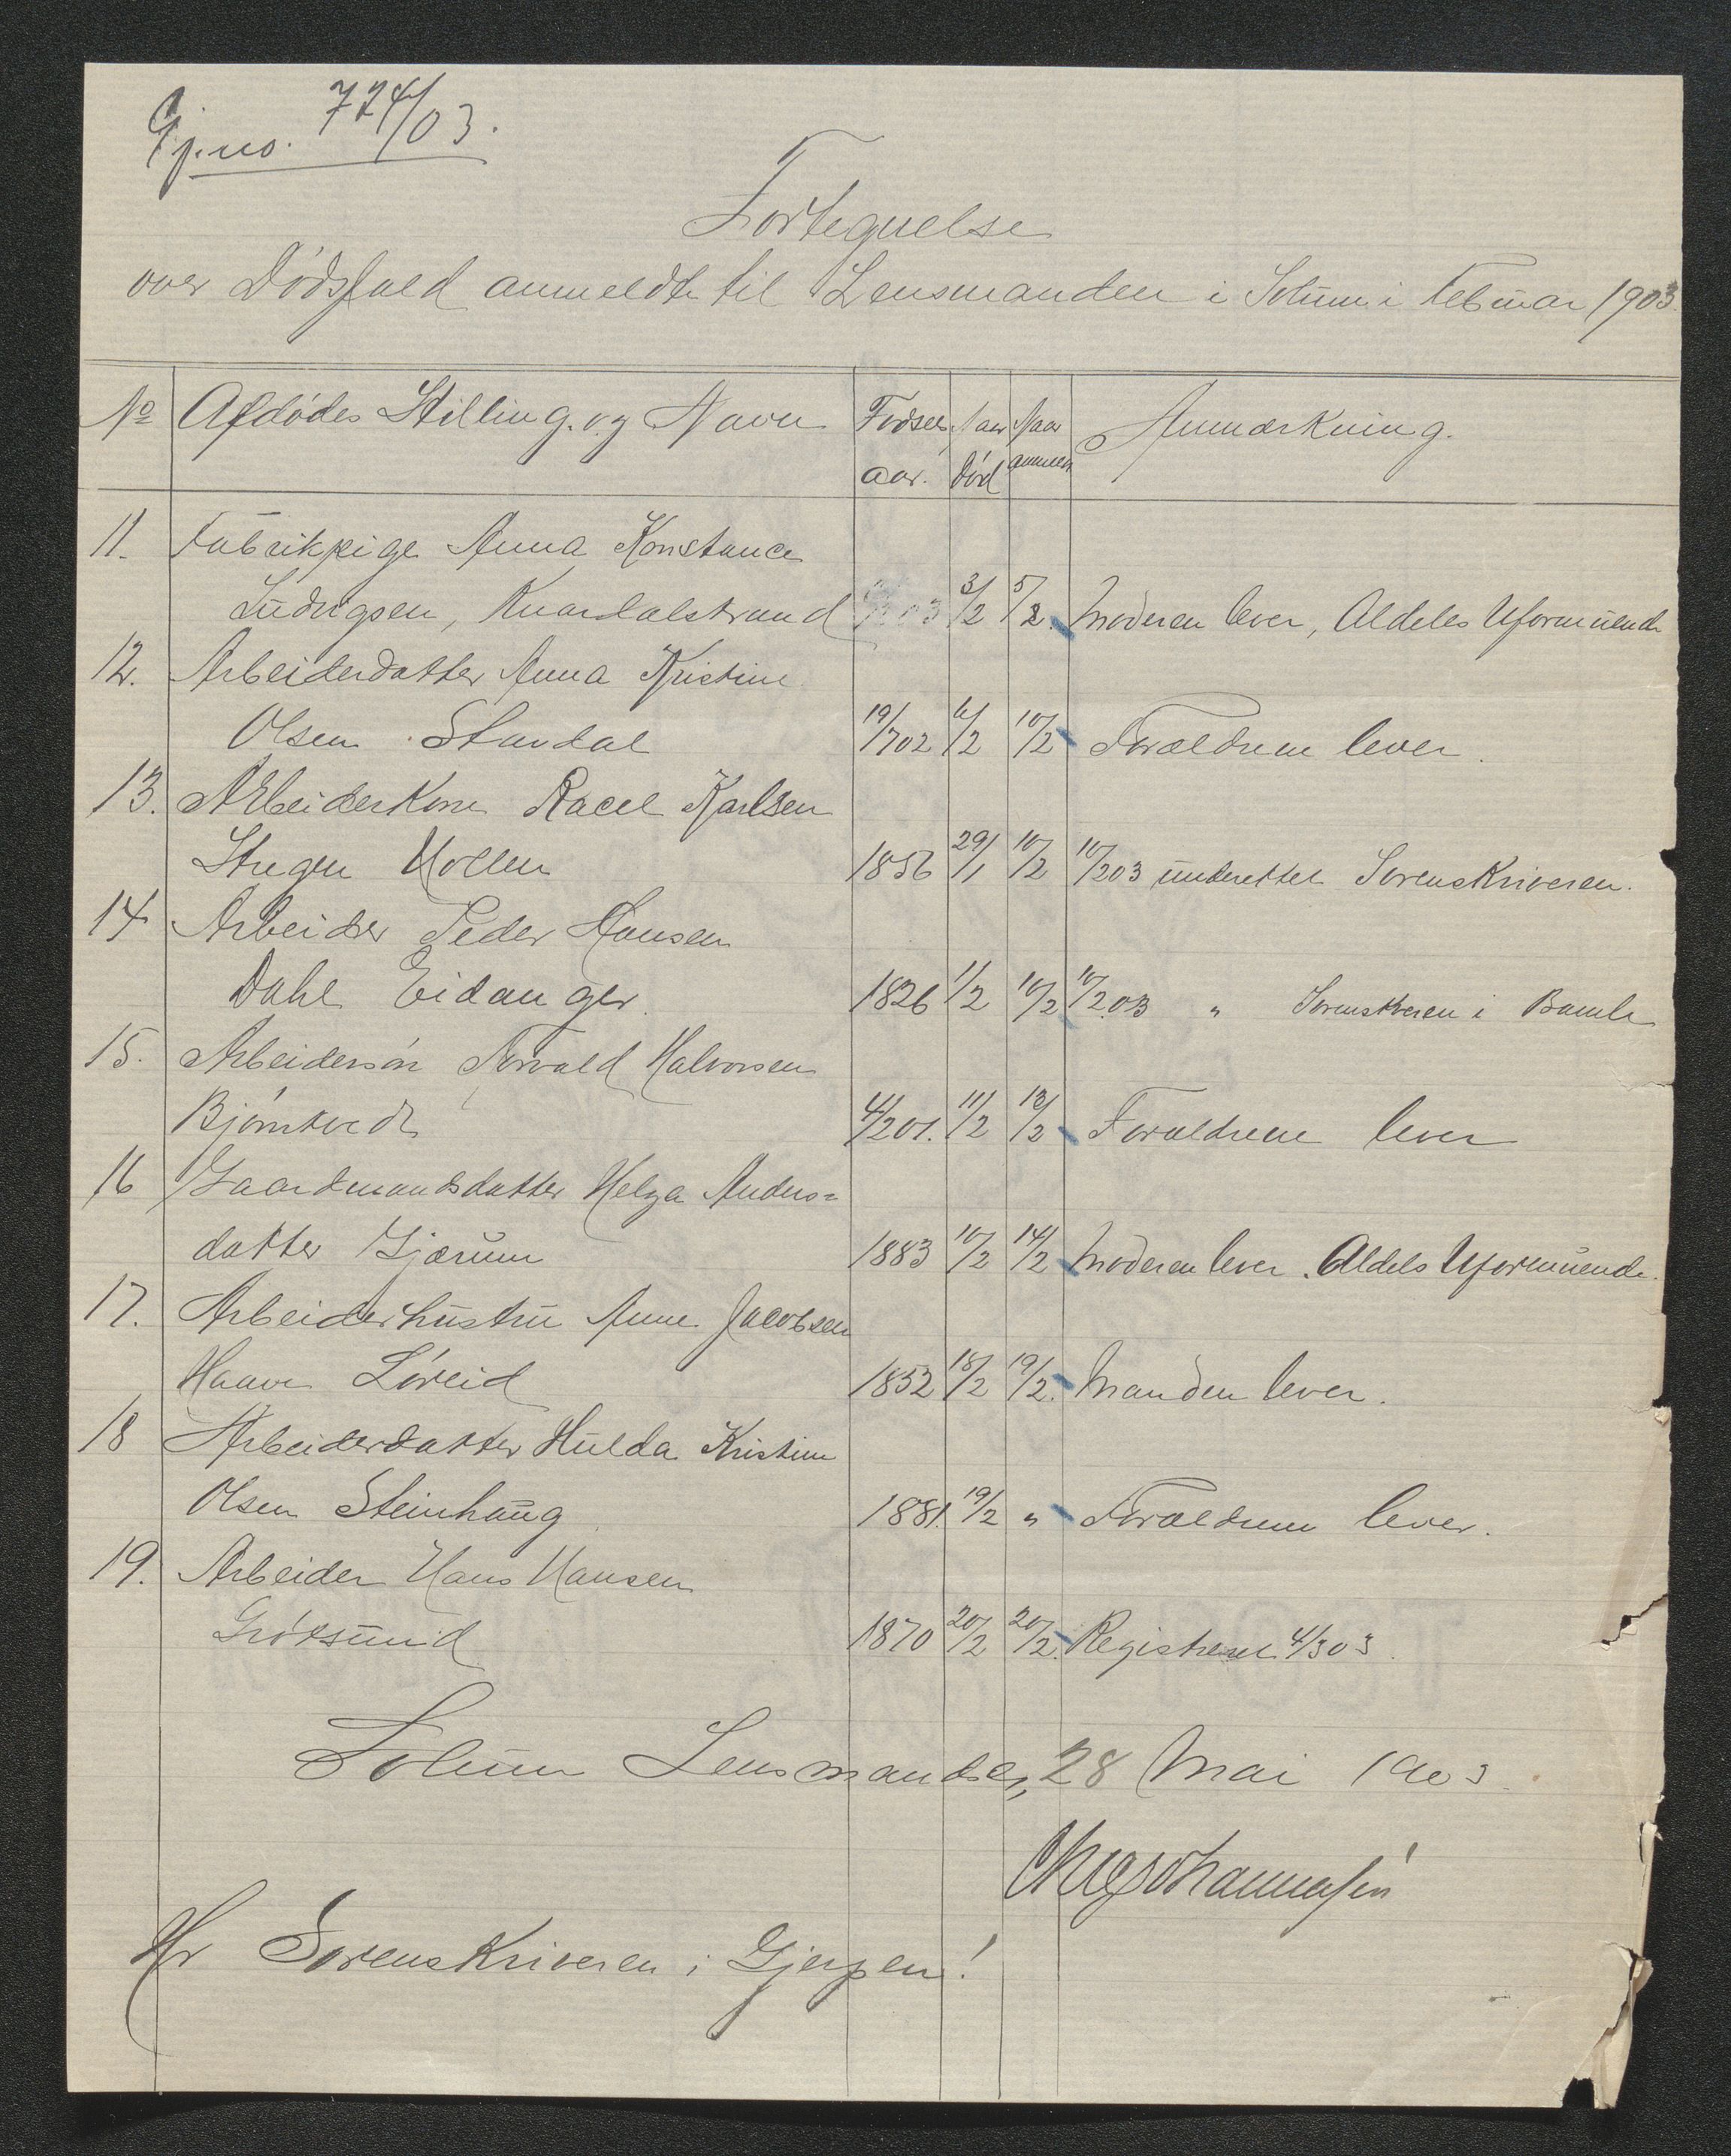 Gj.no. 724/03.
Fortegnelse
over Dødsfald anmeldte til Lensmanden i Solum i Februar 1903.
No Afdødes Stilling og Navn Fødsels aar. Naar Død Naar anmeldt Anmærkning.
11. Fabrikpige Anna Konstance
Ludvigsen, Knardalstrand 3/2 5/2. Moderen lever, Aldeles Uformuende
12. Arbeiderdatter Anna Kristine
Olsen Stavdal 19/702 6/2 10/2 Forældrene lever.
13. Arbeiderkone Racel Karlsen
Stugu Mollen 1856 29/1 10/2 10/203 underettet Sorenskriveren.
14 Arbeider Peder Hansen
Dahl Eidanger. 1826 1/2 10/2 10/2.03 " Sorenskveren i Bamle
15. Arbeidersøn Torvald Halvorsen
Bjørntvedt 4/201. 11/2 13/2 Forældrene lever
16 Gaardmandsdatter Helga Anders=
datter Gjærum 1883 10/2 14/2 Moderen lever. Aldels Uformuende.
17. Arbeiderhustru Anne Jacobsen
Haave Løveid 1852 18/2 19/2. Manden lever.
18 Arbeiderdatter Hulda Kristine
Olsen Steinhaug 1881. 19/2 " Forældrene lever.
19. Arbeider Hans Hansen
Grøtsund 1870 20/2 20/2. Registreret 4/303.
Solum Lensmandsb., 28 Mai 1903.
Hr Sorenskriveren i Gjerpen!